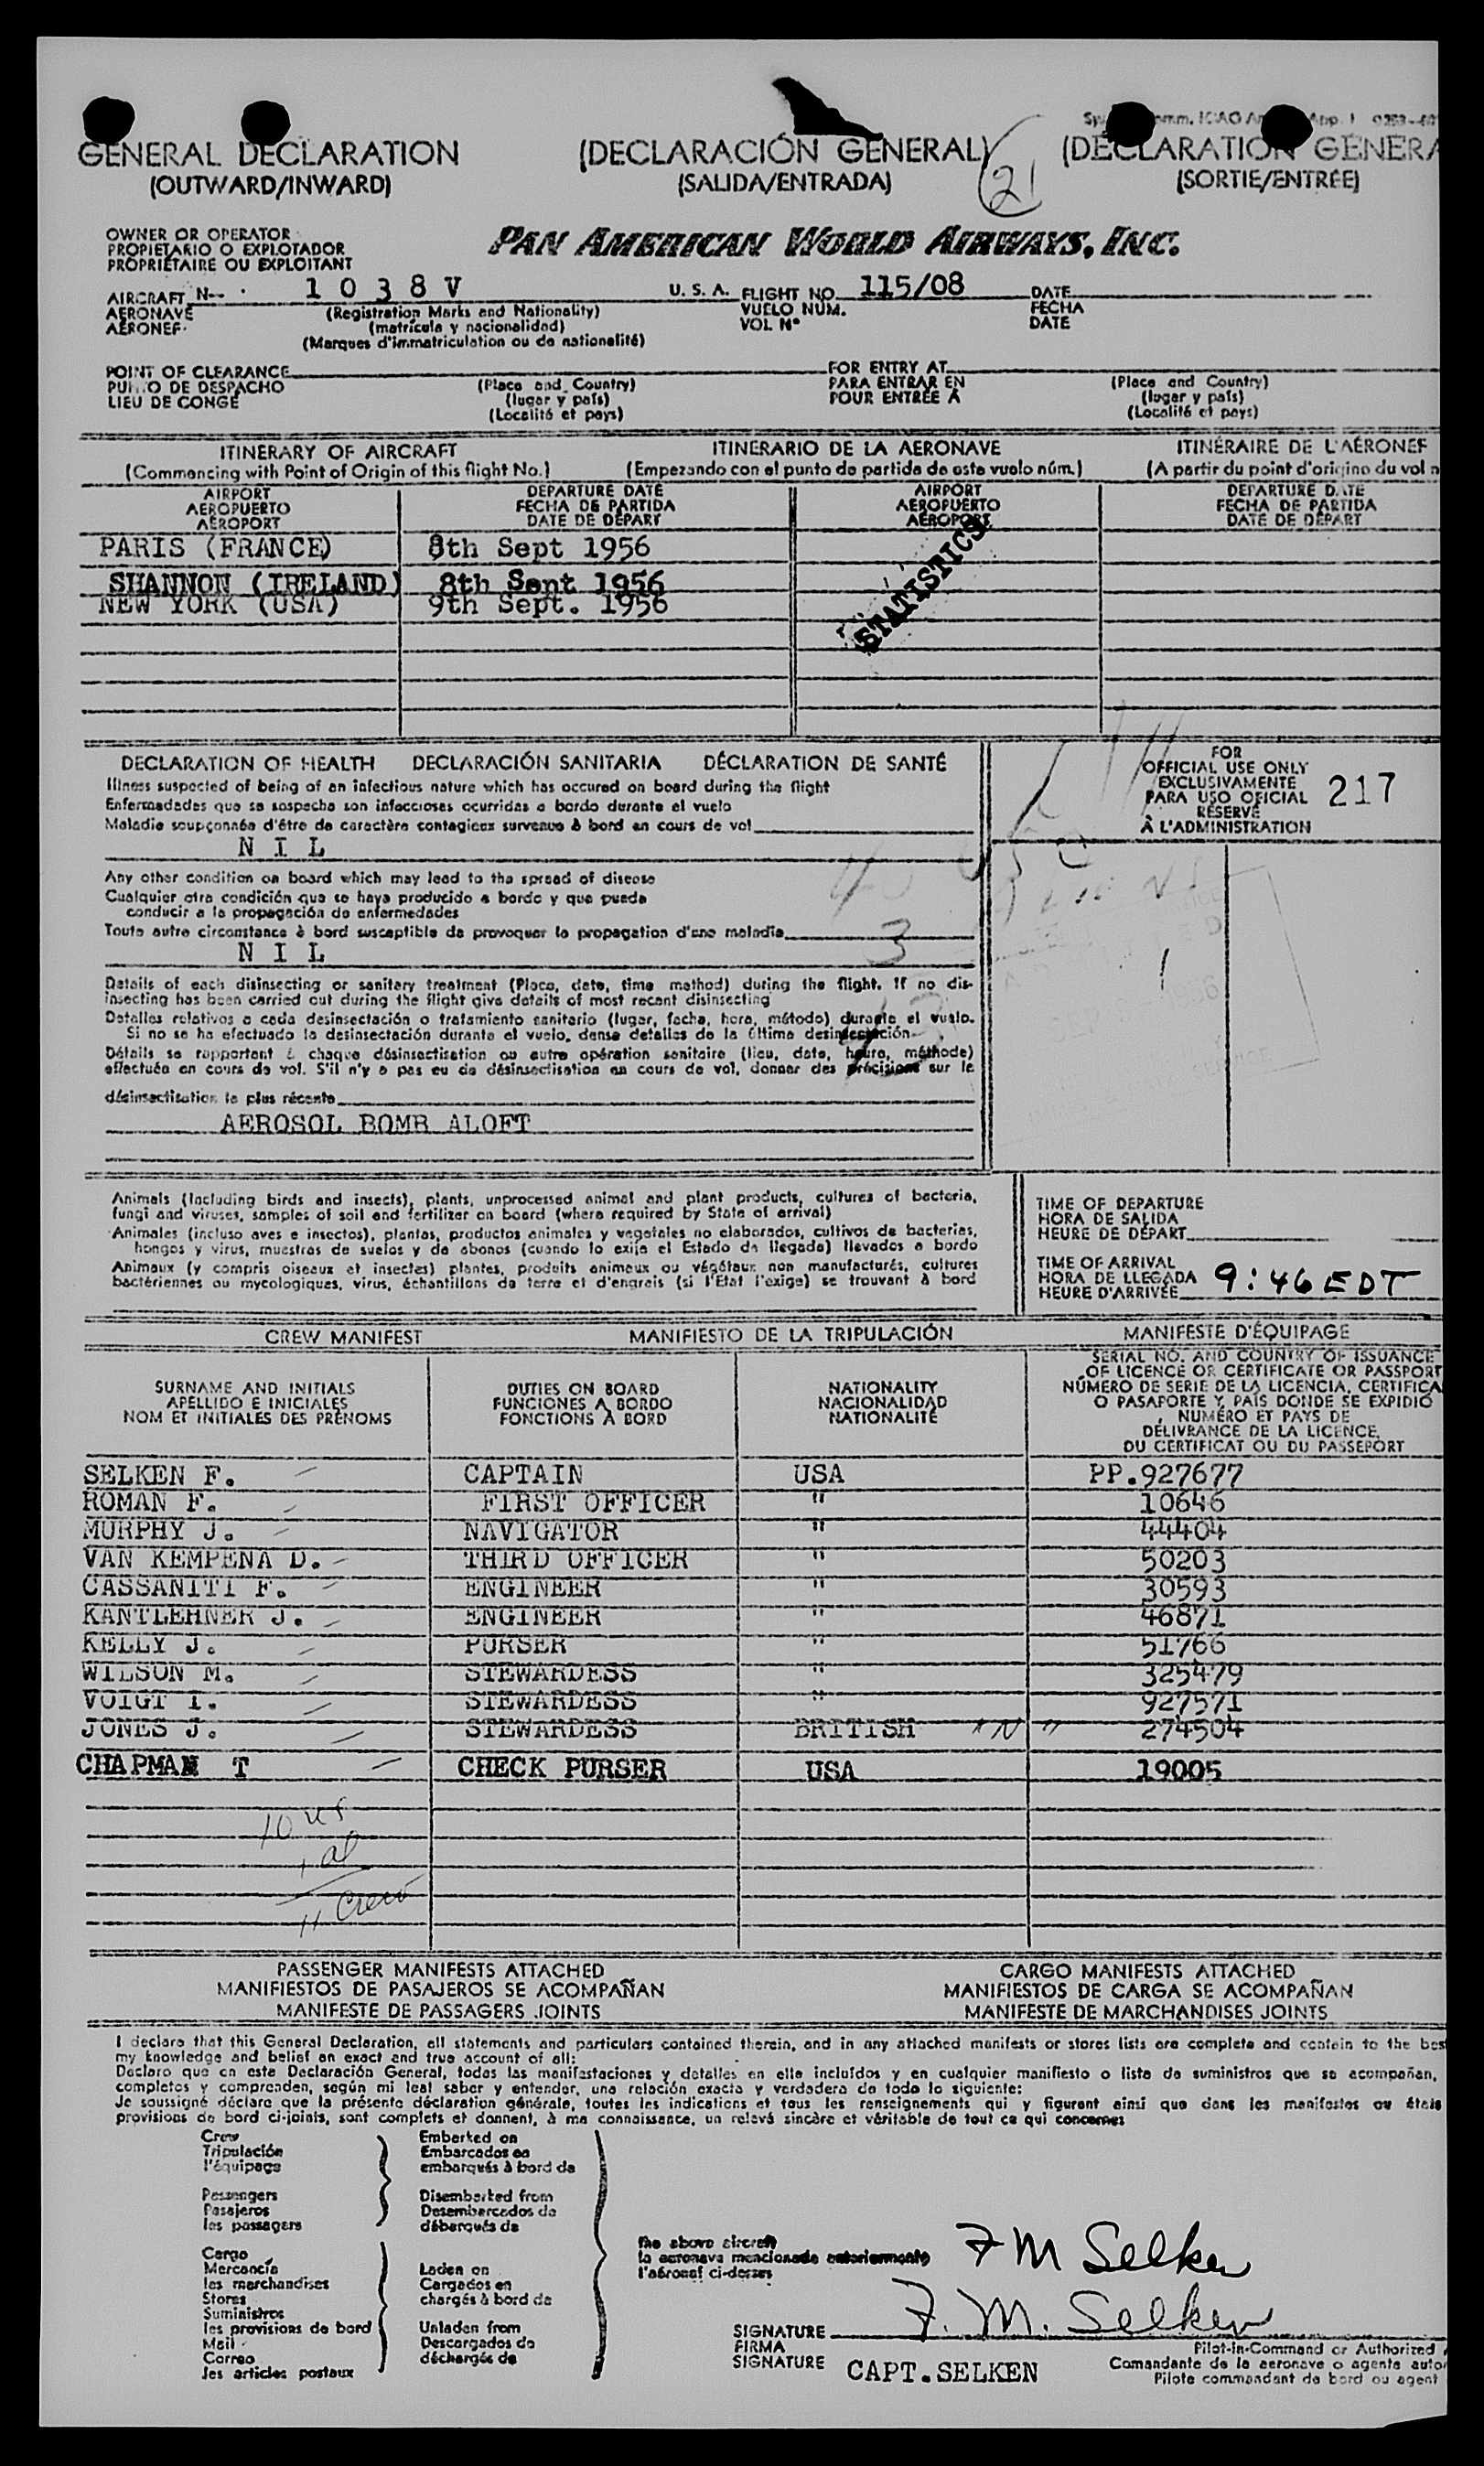 GENERAL DECLARATION (DECLARACIÓN GENERAL) (DÉCLARATION GÉNÉRA
(OUTWARD/INWARD) (SALIDA/ENTRADA) 21 (SORTIE/ENTRÉE)
OWNER OR OPERATOR
PROPIETARIO O EXPLOTADOR PAN AMERICAN WORLD AIRWAYS, INC.
PROPRIÉTAIRE OU EXPLOITANT
AIRCRAFT N-- 1 0 3 8 V U. S. A. FLIGHT NO. 115/08 DATE
AERONAVE (Registration Marks and Nationality) VUELO NÚM. FECHA
AÉRONEF (matrícula y nacionalidad) VOL N° DATE
(Marques d'immatriculation ou de nationalité)
POINT OF CLEARANCE FOR ENTRY AT
PUNTO DE DESPACHO (Place and Country) PARA ENTRAR EN (Place and Country)
LIEU DE CONGÉ (lugar y país) POUR ENTRÉE À (lugar y país)
(Localité et pays) (Localité et pays)
ITINERARY OF AIRCRAFT ITINERARIO DE LA AERONAVE ITINÉRAIRE DE L'AÉRONEF
(Commencing with Point of Origin of this flight No.) (Empezando con el punto de partida de este vuelo núm.) (A partir du point d'origine du vol n
AIRPORT DEPARTURE DATE AIRPORT DEPARTURE DATE
AEROPUERTO FECHA DE PARTIDA AEROPUERTO FECHA DE PARTIDA
AÉROPORT DATE DE DÉPART AÉROPORT DATE DE DÉPART
PARIS (FRANCE) 8th Sept 1956
SHANNON (IRELAND) 8th Sept 1956
NEW YORK (USA) 9th Sept. 1956
STATISTICS
DECLARATION OF HEALTH DECLARACIÓN SANITARIA DÉCLARATION DE SANTÉ
Illness suspected of being of an infectious nature which has occured on board during the flight
Enfermedades que se sospecha son infecciosas ocurridas a bordo durante el vuelo
Maladie soupçonnée d'être de caractère contagieux survenue à bord en cours de vol
N I L
FOR
OFFICIAL USE ONLY
EXCLUSIVAMENTE
PARA USO OFICIAL 217
RÉSERVÉ
À L'ADMINISTRATION
Any other condition on board which may lead to the spread of disease
Cualquier otra condición que se haya producido a bordo y que pueda
conducir a la propagación de enfermedades
Toute autre circonstance à bord susceptible de provoquer la propagation d'une maladie
N I L
3
Details of each disinsecting or sanitary treatment (Place, date, time method) during the flight. If no dis-
insecting has been carried out during the flight give details of most recent disinsecting
Detalles relativos a cada desinsectación o tratamiento sanitario (lugar, fecha, hora, método) durante el vuelo.
Si no se ha efectuado la desinsectación durante el vuelo, dense detalles de la última desinsectación
Détails se rapportant à chaque désinsectisation ou autre opération sanitaire (lieu, date, heure, méthode)
effectuée en cours de vol. S'il n'y a pas eu de désinsectisation en cours de vol, donner des précisions sur la
désinsectisation la plus récente
AEROSOL BOMB ALOFT
Animals (including birds and insects), plants, unprocessed animal and plant products, cultures of bacteria,
fungi and viruses, samples of soil and fertilizer on board (where required by State of arrival)
Animales (incluso aves e insectos), plantas, productos animales y vegetales no elaborados, cultivos de bacterias,
hongos y virus, muestras de suelos y de abonos (cuando lo exija el Estado de llegada) llevados a bordo
Animaux (y compris oiseaux et insectes) plantes, produits animaux ou végétaux non manufacturés, cultures
bactériennes ou mycologiques, virus, échantillons de terre et d'engrais (si l'Etat l'exige) se trouvant à bord
TIME OF DEPARTURE
HORA DE SALIDA
HEURE DE DÉPART
TIME OF ARRIVAL
HORA DE LLEGADA 9:46 EDT
HEURE D'ARRIVÉE
CREW MANIFEST MANIFIESTO DE LA TRIPULACIÓN MANIFESTE D'ÉQUIPAGE
SURNAME AND INITIALS DUTIES ON BOARD NATIONALITY
APELLIDO E INICIALES FUNCIONES A BORDO NACIONALIDAD
NOM ET INITIALES DES PRÉNOMS FONCTIONS À BORD NATIONALITÉ
SERIAL NO. AND COUNTRY OF ISSUANCE
OF LICENCE OR CERTIFICATE OR PASSPORT
NÚMERO DE SERIE DE LA LICENCIA, CERTIFICA
O PASAPORTE Y PAÍS DONDE SE EXPIDIÓ
NUMÉRO ET PAYS DE
DÉLIVRANCE DE LA LICENCE,
DU CERTIFICAT OU DU PASSEPORT
SELKEN F. CAPTAIN USA PP.927677
ROMAN F. FIRST OFFICER " 10646
MURPHY J. NAVIGATOR " 44404
VAN KEMPENA D. THIRD OFFICER " 50203
CASSANITI F. ENGINEER " 30593
KANTLEHNER J. ENGINEER " 46871
KELLY J. PURSER " 51766
WILSON M. STEWARDESS " 325479
VOIGT I. STEWARDESS " 927571
JONES J. STEWARDESS BRITISH "N" 274504
CHAPMAN T CHECK PURSER USA 19005
10 us
1 al
11 Crew
PASSENGER MANIFESTS ATTACHED CARGO MANIFESTS ATTACHED
MANIFIESTOS DE PASAJEROS SE ACOMPAÑAN MANIFIESTOS DE CARGA SE ACOMPAÑAN
MANIFESTE DE PASSAGERS JOINTS MANIFESTE DE MARCHANDISES JOINTS
I declare that this General Declaration, all statements and particulars contained therein, and in any attached manifests or stores lists are complete and contain to the bes
my knowledge and belief an exact and true account of all:
Declaro que en esta Declaración General, todas las manifestaciones y detalles en ella incluídos y en cualquier manifiesto o lista de suministros que se acompañan,
completos y comprenden, según mi leal saber y entender, una relación exacta y verdadera de todo lo siguiente:
Je soussigné déclare que la présente déclaration générale, toutes les indications et tous les renseignements qui y figurent ainsi que dans les manifestes ou états
provisions de bord ci-joints, sont complets et donnent, à ma connaissance, un relevé sincère et véritable de tout ce qui concerne:
Crew Embarked on
Tripulación Embarcados en
l'équipage embarqués à bord de
Passengers Disembarked from
Pasajeros Desembarcados de
les passagers débarqués de
Cargo
Mercancía Laden on
les marchandises Cargados en
Stores chargés à bord de
Suministros
les provisions de bord Unladen from
Mail Descargados de
Correo déchargés de
les articles postaux
the above aircraft
la aeronave mencionada anteriormente F M Selken
l'aéronef ci-dessus
SIGNATURE F. M. Selken
FIRMA Pilot-in-Command or Authorized
SIGNATURE CAPT.SELKEN Comandante de la aeronave o agente auto
Pilote commandant de bord ou agent